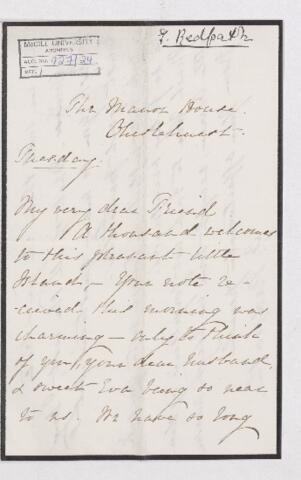 F. Redpath
McGILL UNIVERSITY
ARCHIVES
ACC. NO. 927/24
REF.
The Manor House.
Chislehurst.
Tuesday.
My very dear Friend
A thousand welcomes
to this pleasant little
Island – Your note re-
ceived this morning was
charming – only to think
of you, your dear husband,
& sweet Eva being so near
to us. We have so long